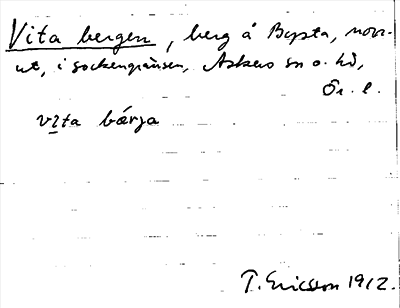 Vita bergen, berg å Bysta, norr-
ut, i sockengränsen, Askers sn o. hd,
Ör. l.
vıta bärja
T. Ericsson 1912.